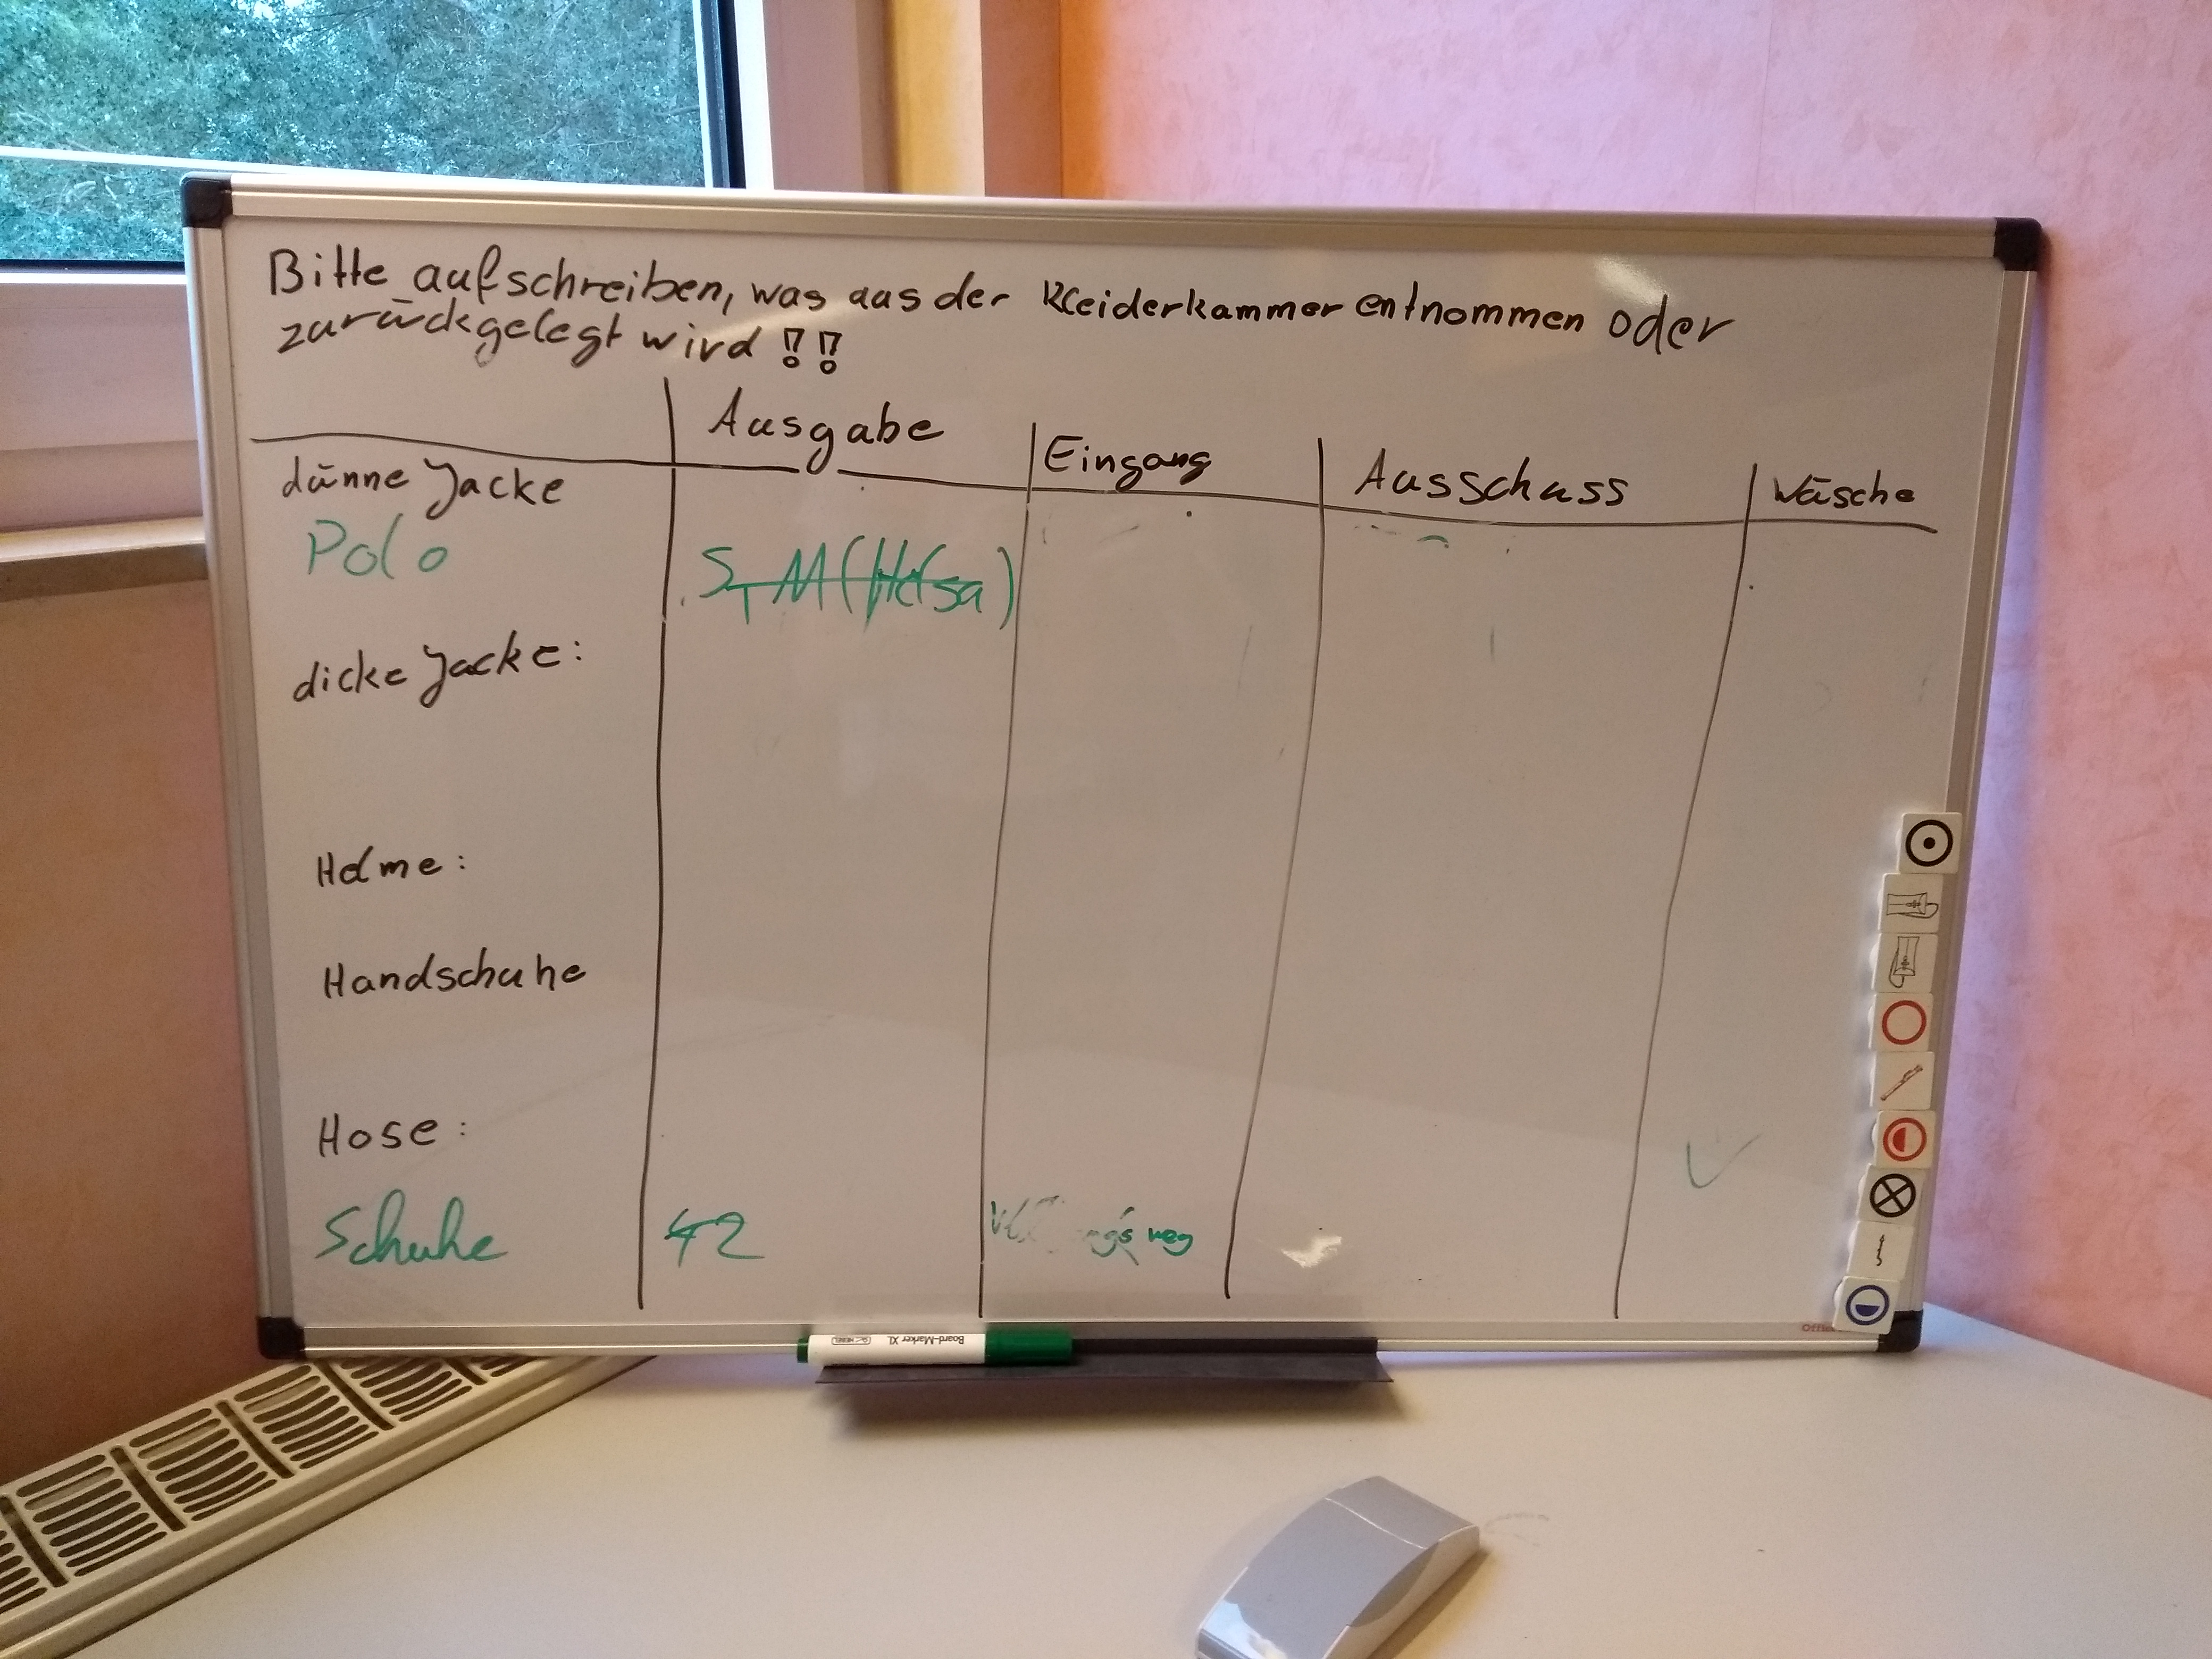 Bitte aufschreiben, was aus der Kleiderkammer entnommen oder
zurückgelegt wird !!
Ausgabe Eingang Ausschuss Wäsche
dünne Jacke
Polo
dicke Jacke:
Helme:
Handschuhe
Hose:
Schuhe 42 weg
Board-Marker XL